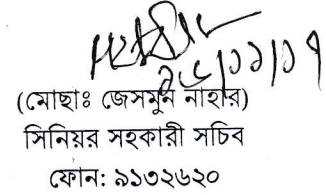 (মোছাঃ জেসমুন নাহার)
সিনিয়র সহকারী সচিব
ফোন: ৯১৩২৬২০